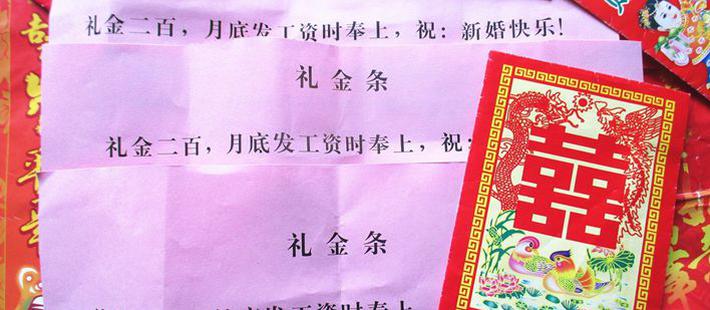 礼金二百，月底发工资时奉上，祝：新婚快乐！
礼金条
礼金二百，月底发工资时奉上，祝：
礼金条
月底发工资时奉上
囍